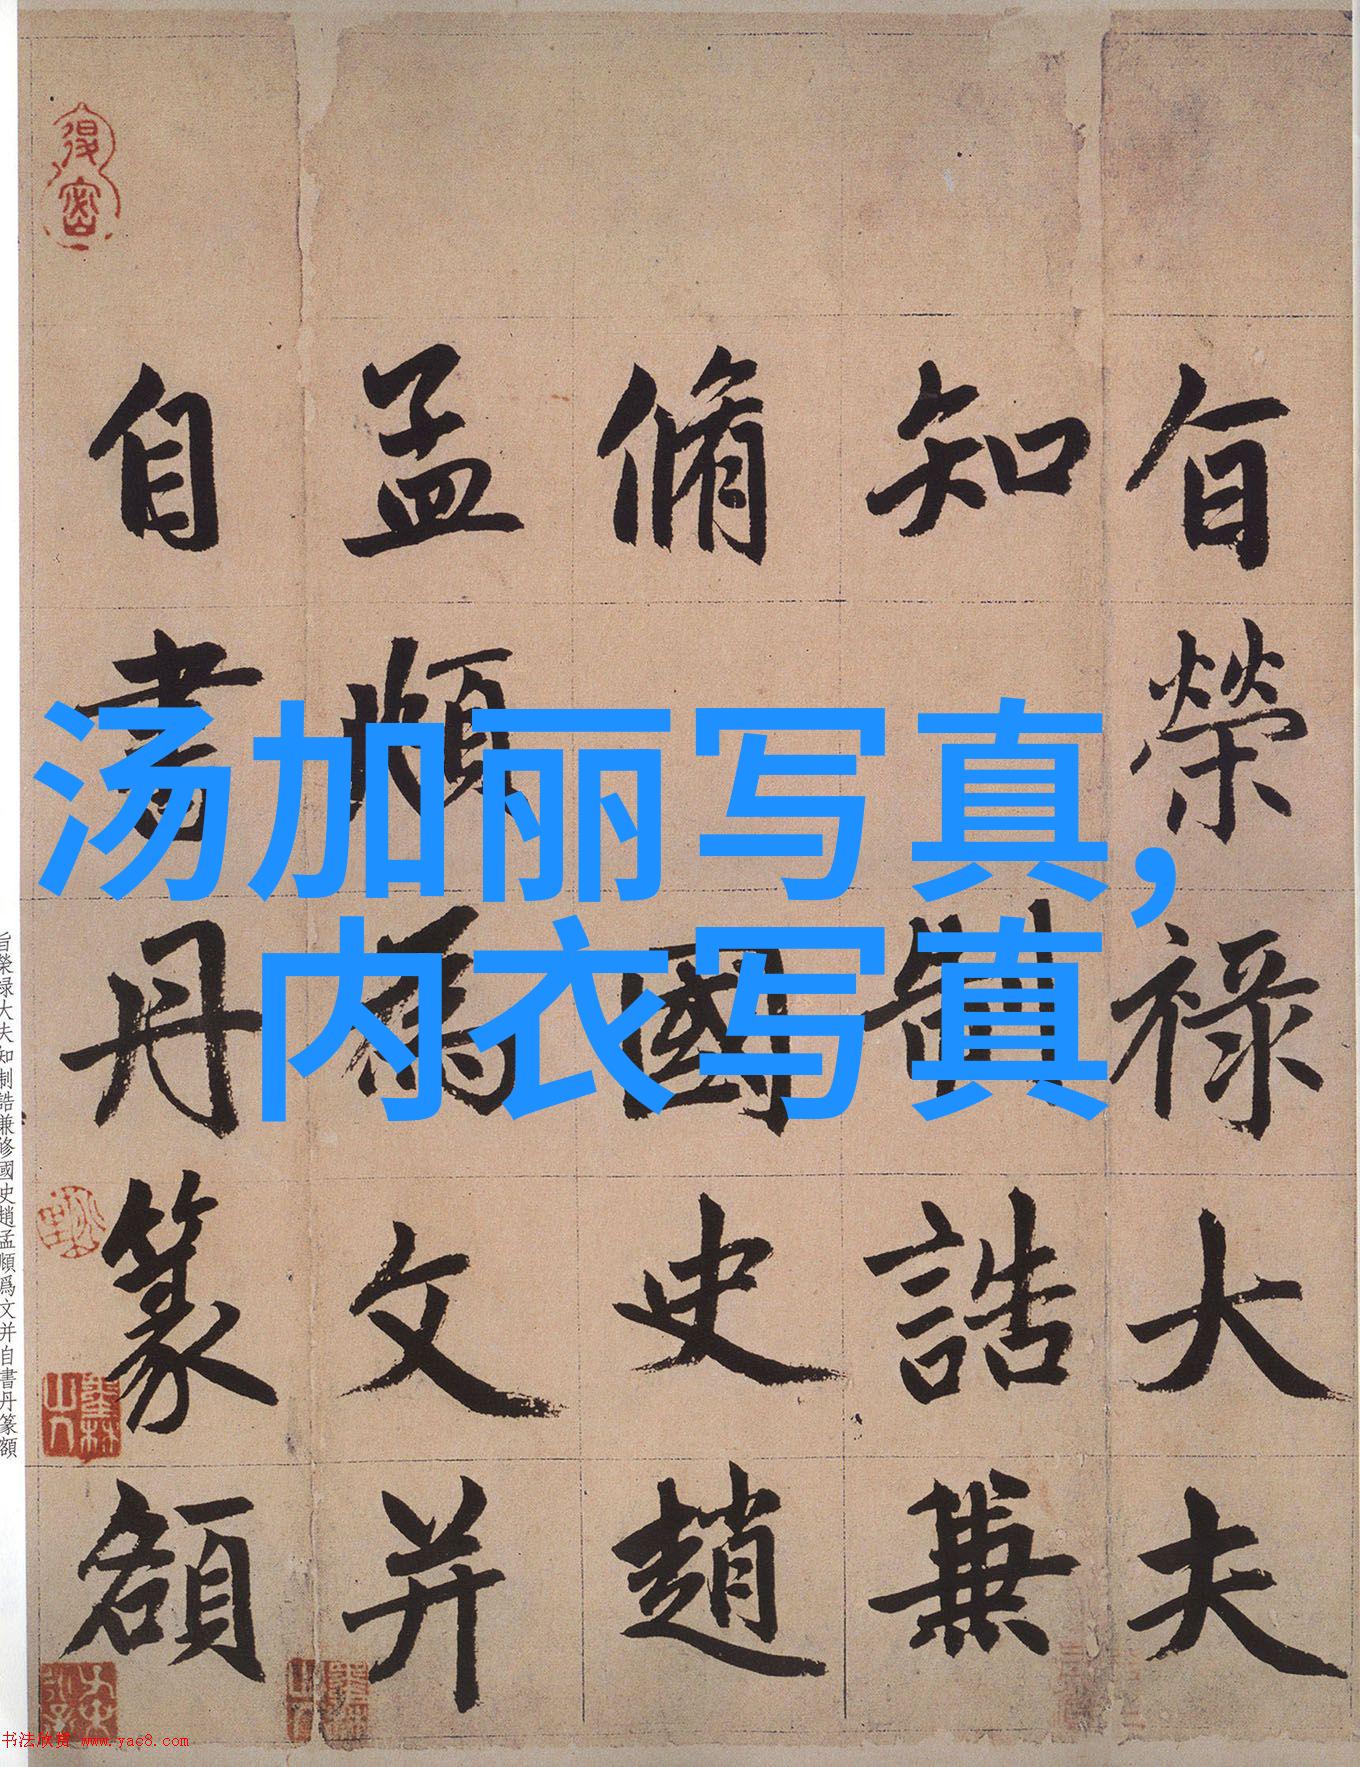 汤加丽写真,
内衣写真
旨榮祿大夫
知制誥兼
脩國史趙
孟頫為文并
自書丹篆額
旨榮禄大夫知制誥兼修國史趙孟頫爲文并自書丹篆額
书法欣赏 www.yac8.com